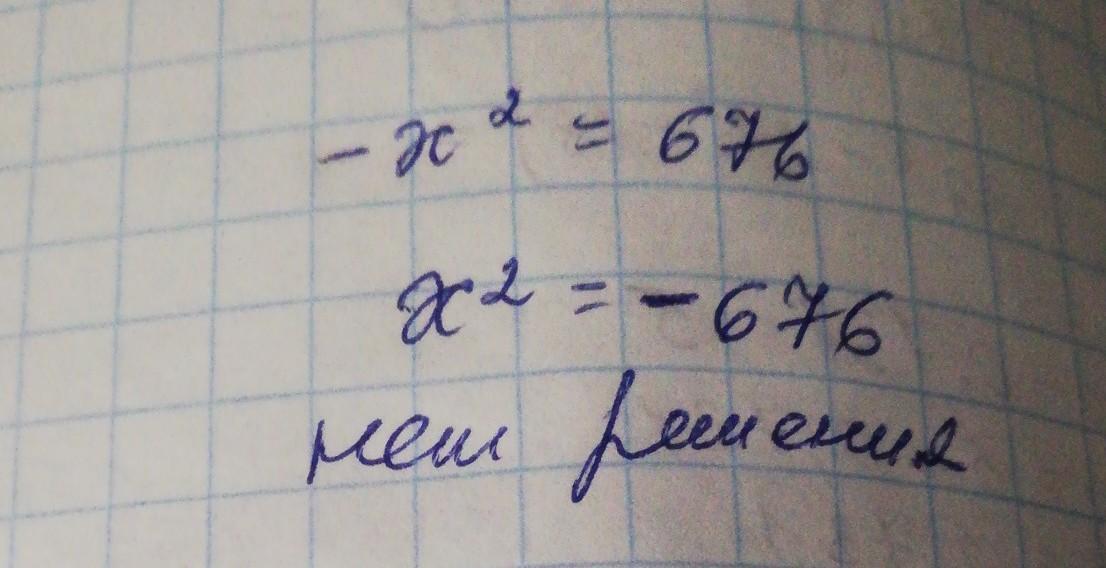 - x² = 676
x² = - 676
нет решения